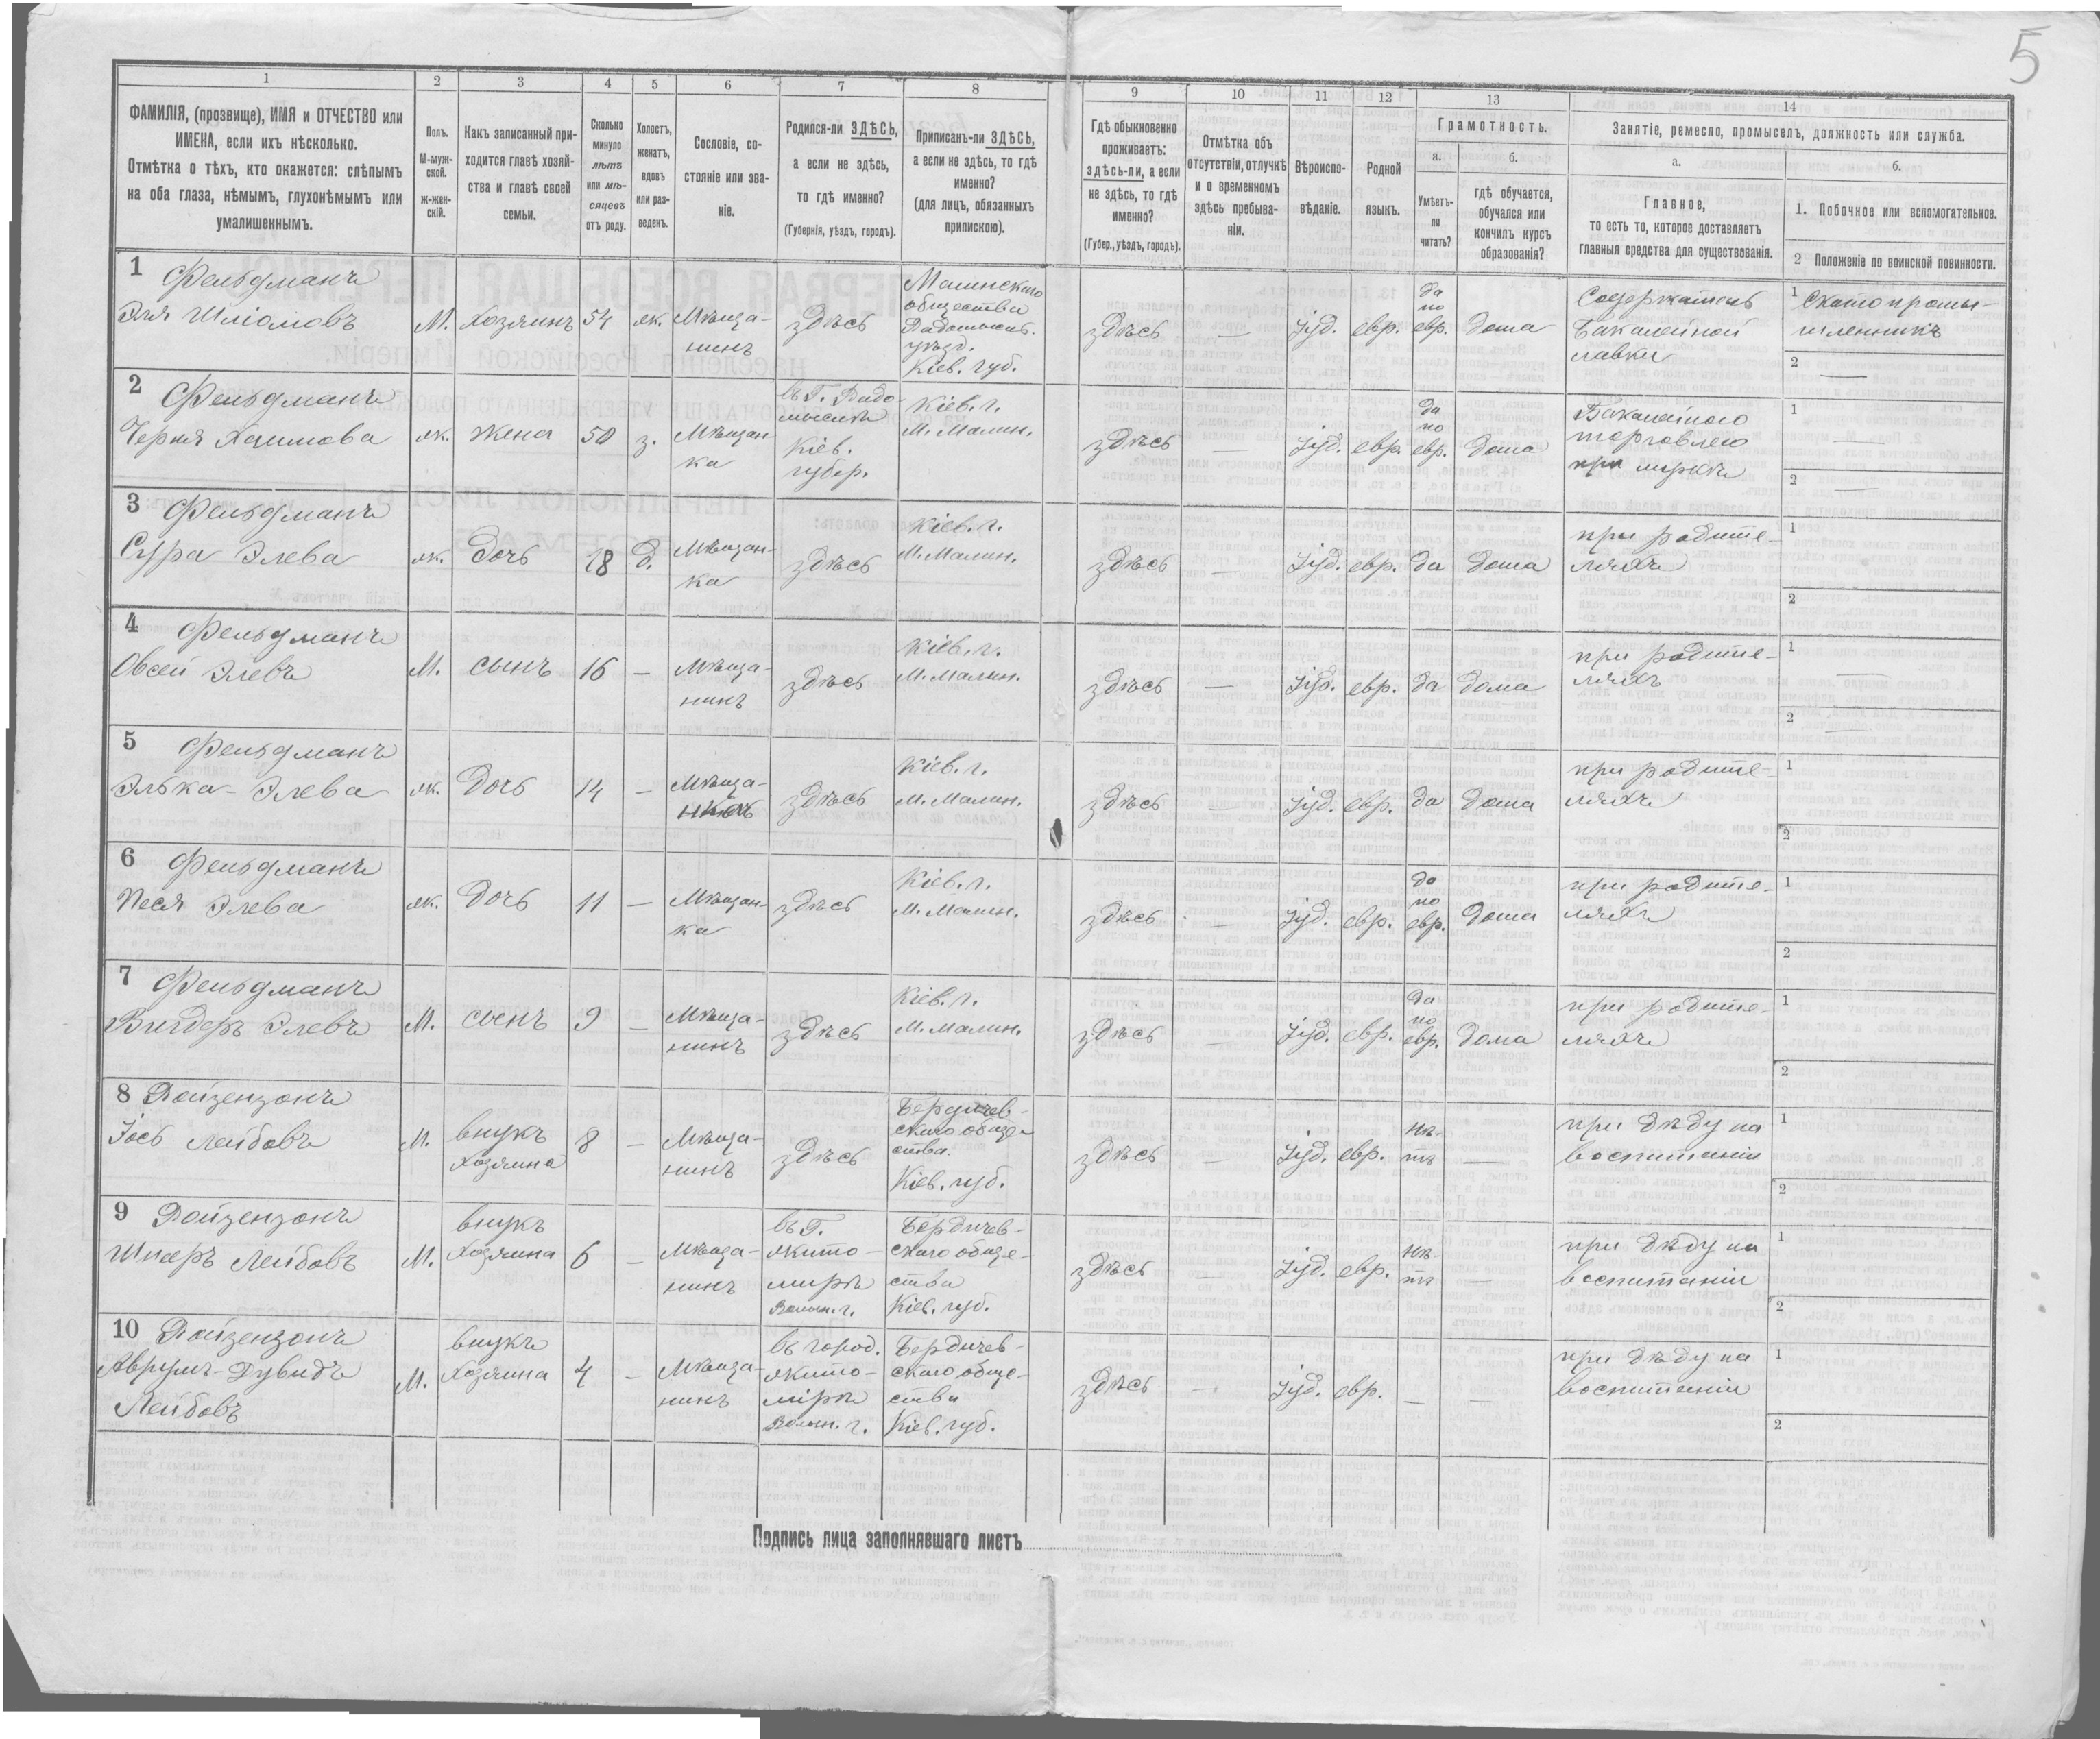 5
1 2 3 4 5 6 7 8 9 10 11 12 13 14
ФАМИЛІЯ, (прозвище), ИМЯ и ОТЧЕСТВО или
ИМЕНА, если ихъ нѣсколько.
Отмѣтка о тѣхъ, кто окажется: слѣпымъ
на оба глаза, нѣмымъ, глухонѣмымъ или
умалишеннымъ.
Полъ.
М-муж-
ской.
ж-жен-
скій.
Какъ записанный при-
ходится главѣ хозяй-
ства и главѣ своей
семьи.
Сколько
минуло
лѣтъ
или мѣ-
сяцевъ
отъ роду.
Холостъ,
женатъ,
вдовъ
или раз-
веденъ.
Сословіе, со-
стояніе или зва-
ніе.
Родился-ли ЗДѢСЬ,
а если не здѣсь,
то гдѣ именно?
(Губернія, уѣздъ, городъ).
Приписанъ-ли ЗДѢСЬ,
а если не здѣсь, то гдѣ
именно?
(для лицъ, обязанныхъ
припискою).
Гдѣ обыкновенно
проживаетъ:
здѣсь-ли, а если
не здѣсь, то гдѣ
именно?
(Губер., уѣздъ, городъ).
Отмѣтка объ
отсутствіи, отлучкѣ
и о временномъ
здѣсь пребыва-
ніи.
Вѣроиспо-
вѣданіе.
Родной
языкъ.
Грамотность.
а.
Умѣетъ-
ли
читать?
б.
гдѣ обучается,
обучался или
кончилъ курсъ
образованія?
Занятіе, ремесло, промыселъ, должность или служба.
а.
Главное,
то есть то, которое доставляетъ
главныя средства для существованія.
б.
1. Побочное или вспомогательное.
2 Положеніе по воинской повинности.
1 Фельдманъ
Эля Шліомовъ
М.
Хозяинъ
54
ж.
Мѣща-
нинъ
здѣсь
Малинского
общества
Радомысл.
уѣзд.
Кіев. губ.
здѣсь
—
Іуд.
евр.
да
по
евр.
дома
Содержатель
Бакалейной
лавки
1 Скотопромы-
шленникъ
2 —
2 Фельдманъ
Черня Хаимова
ж.
жена
50
з.
Мѣщан-
ка
въ Г. Радо-
мыслѣ
Кіев.
губер.
Кіев. г.
М. Малин.
здѣсь
—
Іуд.
евр.
да
по
евр.
дома
Бакалейною
торговлею
при мужѣ
1 —
2 —
3 Фельдманъ
Сура Элева
ж.
дочь
18
д.
Мѣщан-
ка
здѣсь
Кіев. г.
М. Малин.
здѣсь
—
Іуд.
евр.
да
дома
при родите-
ляхъ
1
2
4 Фельдманъ
Овсей Элевъ
М.
сынъ
16
—
Мѣща-
нинъ
здѣсь
Кіев. г.
М. Малин.
здѣсь
—
Іуд.
евр.
да
дома
при родите-
ляхъ
1 —
2 —
5 Фельдманъ
Элька-Элева
ж.
дочь
14
—
Мѣща-
здѣсь
Кіев. г.
М. Малин.
здѣсь
—
Іуд.
евр.
да
дома
при родите-
ляхъ
1
2
6 Фельдманъ
Песя Элева
ж.
дочь
11
—
Мѣщан-
ка
здѣсь
Кіев. г.
М. Малин.
здѣсь
—
Іуд.
евр.
да
по
евр.
дома
при родите-
ляхъ
1
2
7 Фельдманъ
Вигдеръ Элевъ
М.
сынъ
9
—
Мѣща-
нинъ
здѣсь
Кіев. г.
М. Малин.
здѣсь
—
Іуд.
евр.
да
по
евр.
дома
при родите-
ляхъ
1
2
8 Ройзензонъ
Іось Лейбовъ
М.
внукъ
Хозяина
8
—
Мѣща-
нинъ
здѣсь
Бердичев-
скаго обще-
ства.
Кіев. губ.
здѣсь
—
Іуд.
евр.
нѣ-
тъ
—
при дѣду на
воспитаніи
1
2
9 Ройзензонъ
Шмеръ Лейбовъ
М.
внукъ
Хозяина
6
—
Мѣща-
нинъ
въ Г.
Жито-
мирѣ
Волын. г.
Бердичев-
скаго обще-
ства
Кіев. губ.
здѣсь
—
Іуд.
евр.
нѣ-
тъ
—
при дѣду на
воспитаніи
1
2
10 Ройзензонъ
Аврумъ-Дувидъ
Лейбовъ
М.
внукъ
Хозяина
4
—
Мѣща-
нинъ
въ город.
Жито-
мірѣ
Волын. г.
Бердичев-
скаго обще-
ства
Кіев. губ.
здѣсь
—
Іуд.
евр.
—
—
при дѣду на
воспитаніи
1
2
Подпись лица заполнявшаго листъ